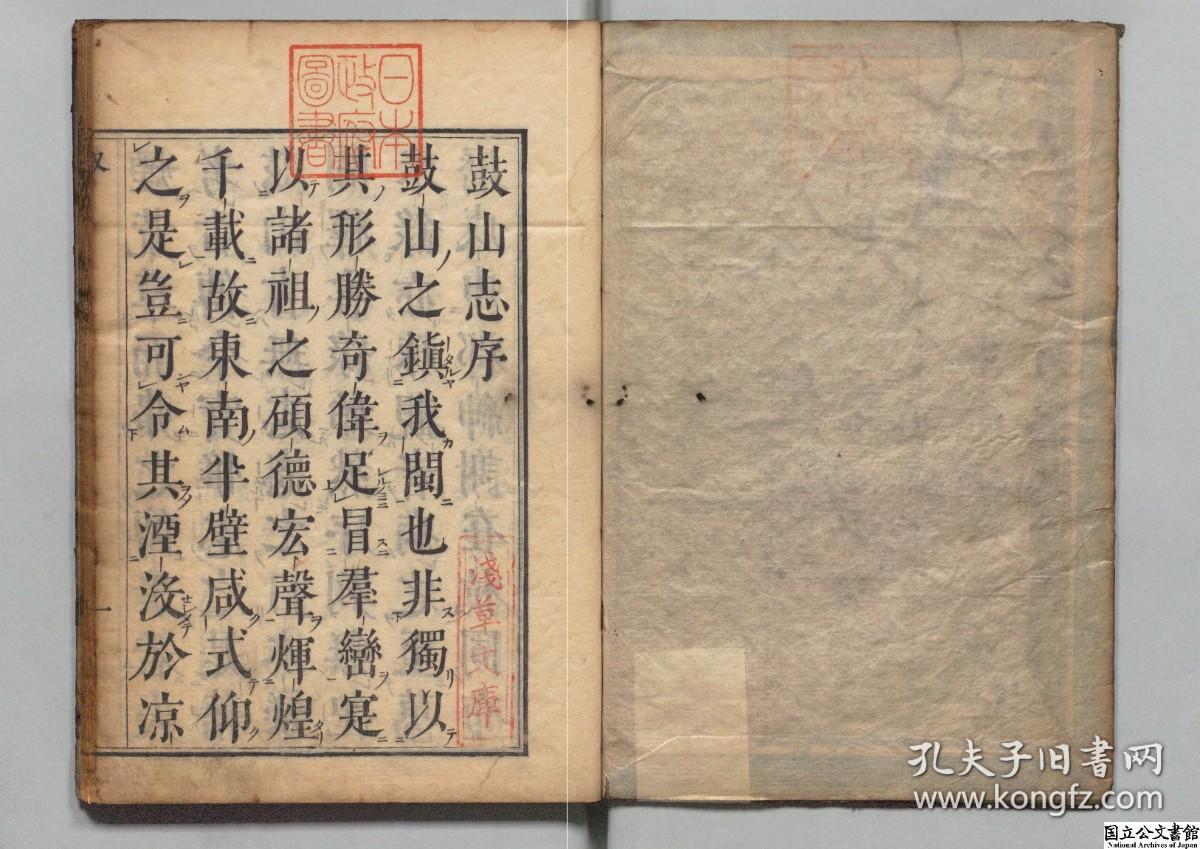 鼓山志序
鼓山之鎮我閩也非獨以
其形勝奇偉足冒羣巒寔
以諸祖之碩德宏聲煇煌
千載故東南半壁咸式仰
之是豈可令其湮没於凉
一
日本
政府
圖書
淺草文庫
孔夫子旧书网
www.kongfz.com
国立公文書館
National Archives of Japan